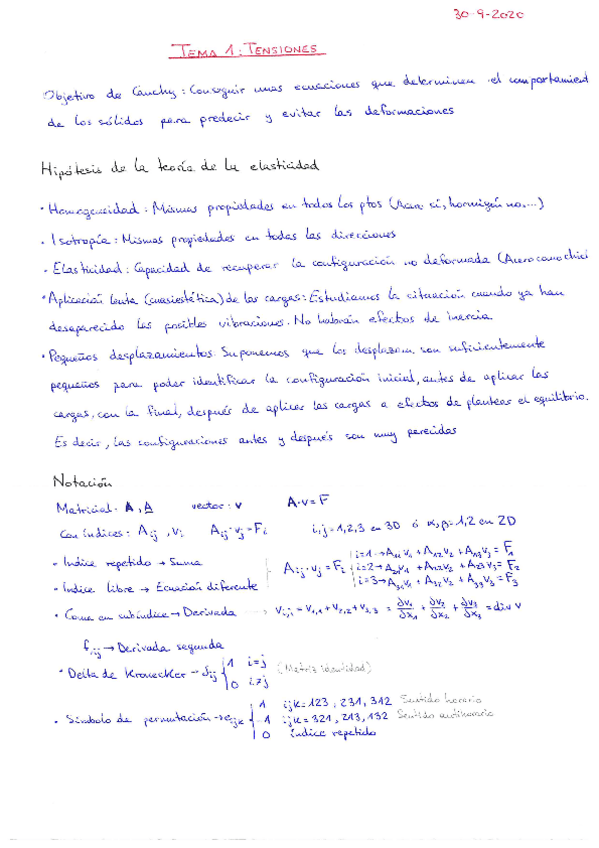 30-9-2020
TEMA 1: TENSIONES
Objetivo de Cauchy: Conseguir unas ecuaciones que determinen el comportamient
de los sólidos para predecir y evitar las deformaciones
Hipótesis de la teoría de la elasticidad
· Homogeneidad: Mismas propiedades en todos los ptos (Acero sí, hormigón no,...)
· Isotropía: Mismas propiedades en todas las direcciones
· Elasticidad: Capacidad de recuperar la configuración no deformada (Acero como chicl
· Aplicación lenta (cuasiestática) de las cargas: Estudiamos la situación cuando ya han
desaparecido las posibles vibraciones. No habrán efectos de inercia
· Pequeños desplazamientos: Suponemos que los desplazam. son suficientemente
pequeños para poder identificar la configuración inicial, antes de aplicar las
cargas, con la final, después de aplicar las cargas a efectos de plantear el equilibrio.
Es decir, las configuraciones antes y después son muy parecidas
Notación
Matricial: A, A vector: v A·v=F
Con índices: Aij, vi Aij·vj=Fi i,j=1,2,3 en 3D ó α,β=1,2 en 2D
- Indice repetido → Suma
- Indice libre → Ecuación diferente
Aij·vj=Fi
i=1→A11v1+A12v2+A13v3=F1
i=2→A21v1+A22v2+A23v3=F2
i=3→A31v1+A32v2+A33v3=F3
· Coma en subíndice → Derivada → vi,i=v1,1+v2,2+v3,3 = ∂v1/∂x1 + ∂v2/∂x2 + ∂v3/∂x3 = div v
f,ij → Derivada segunda
· Delta de Kronecker → δij { 1 i=j (Matriz identidad)
0 i≠j
· Símbolo de permutación → eijk { 1 ijk=123, 231, 312 Sentido horario
-1 ijk=321, 213, 132 Sentido antihorario
0 índice repetido